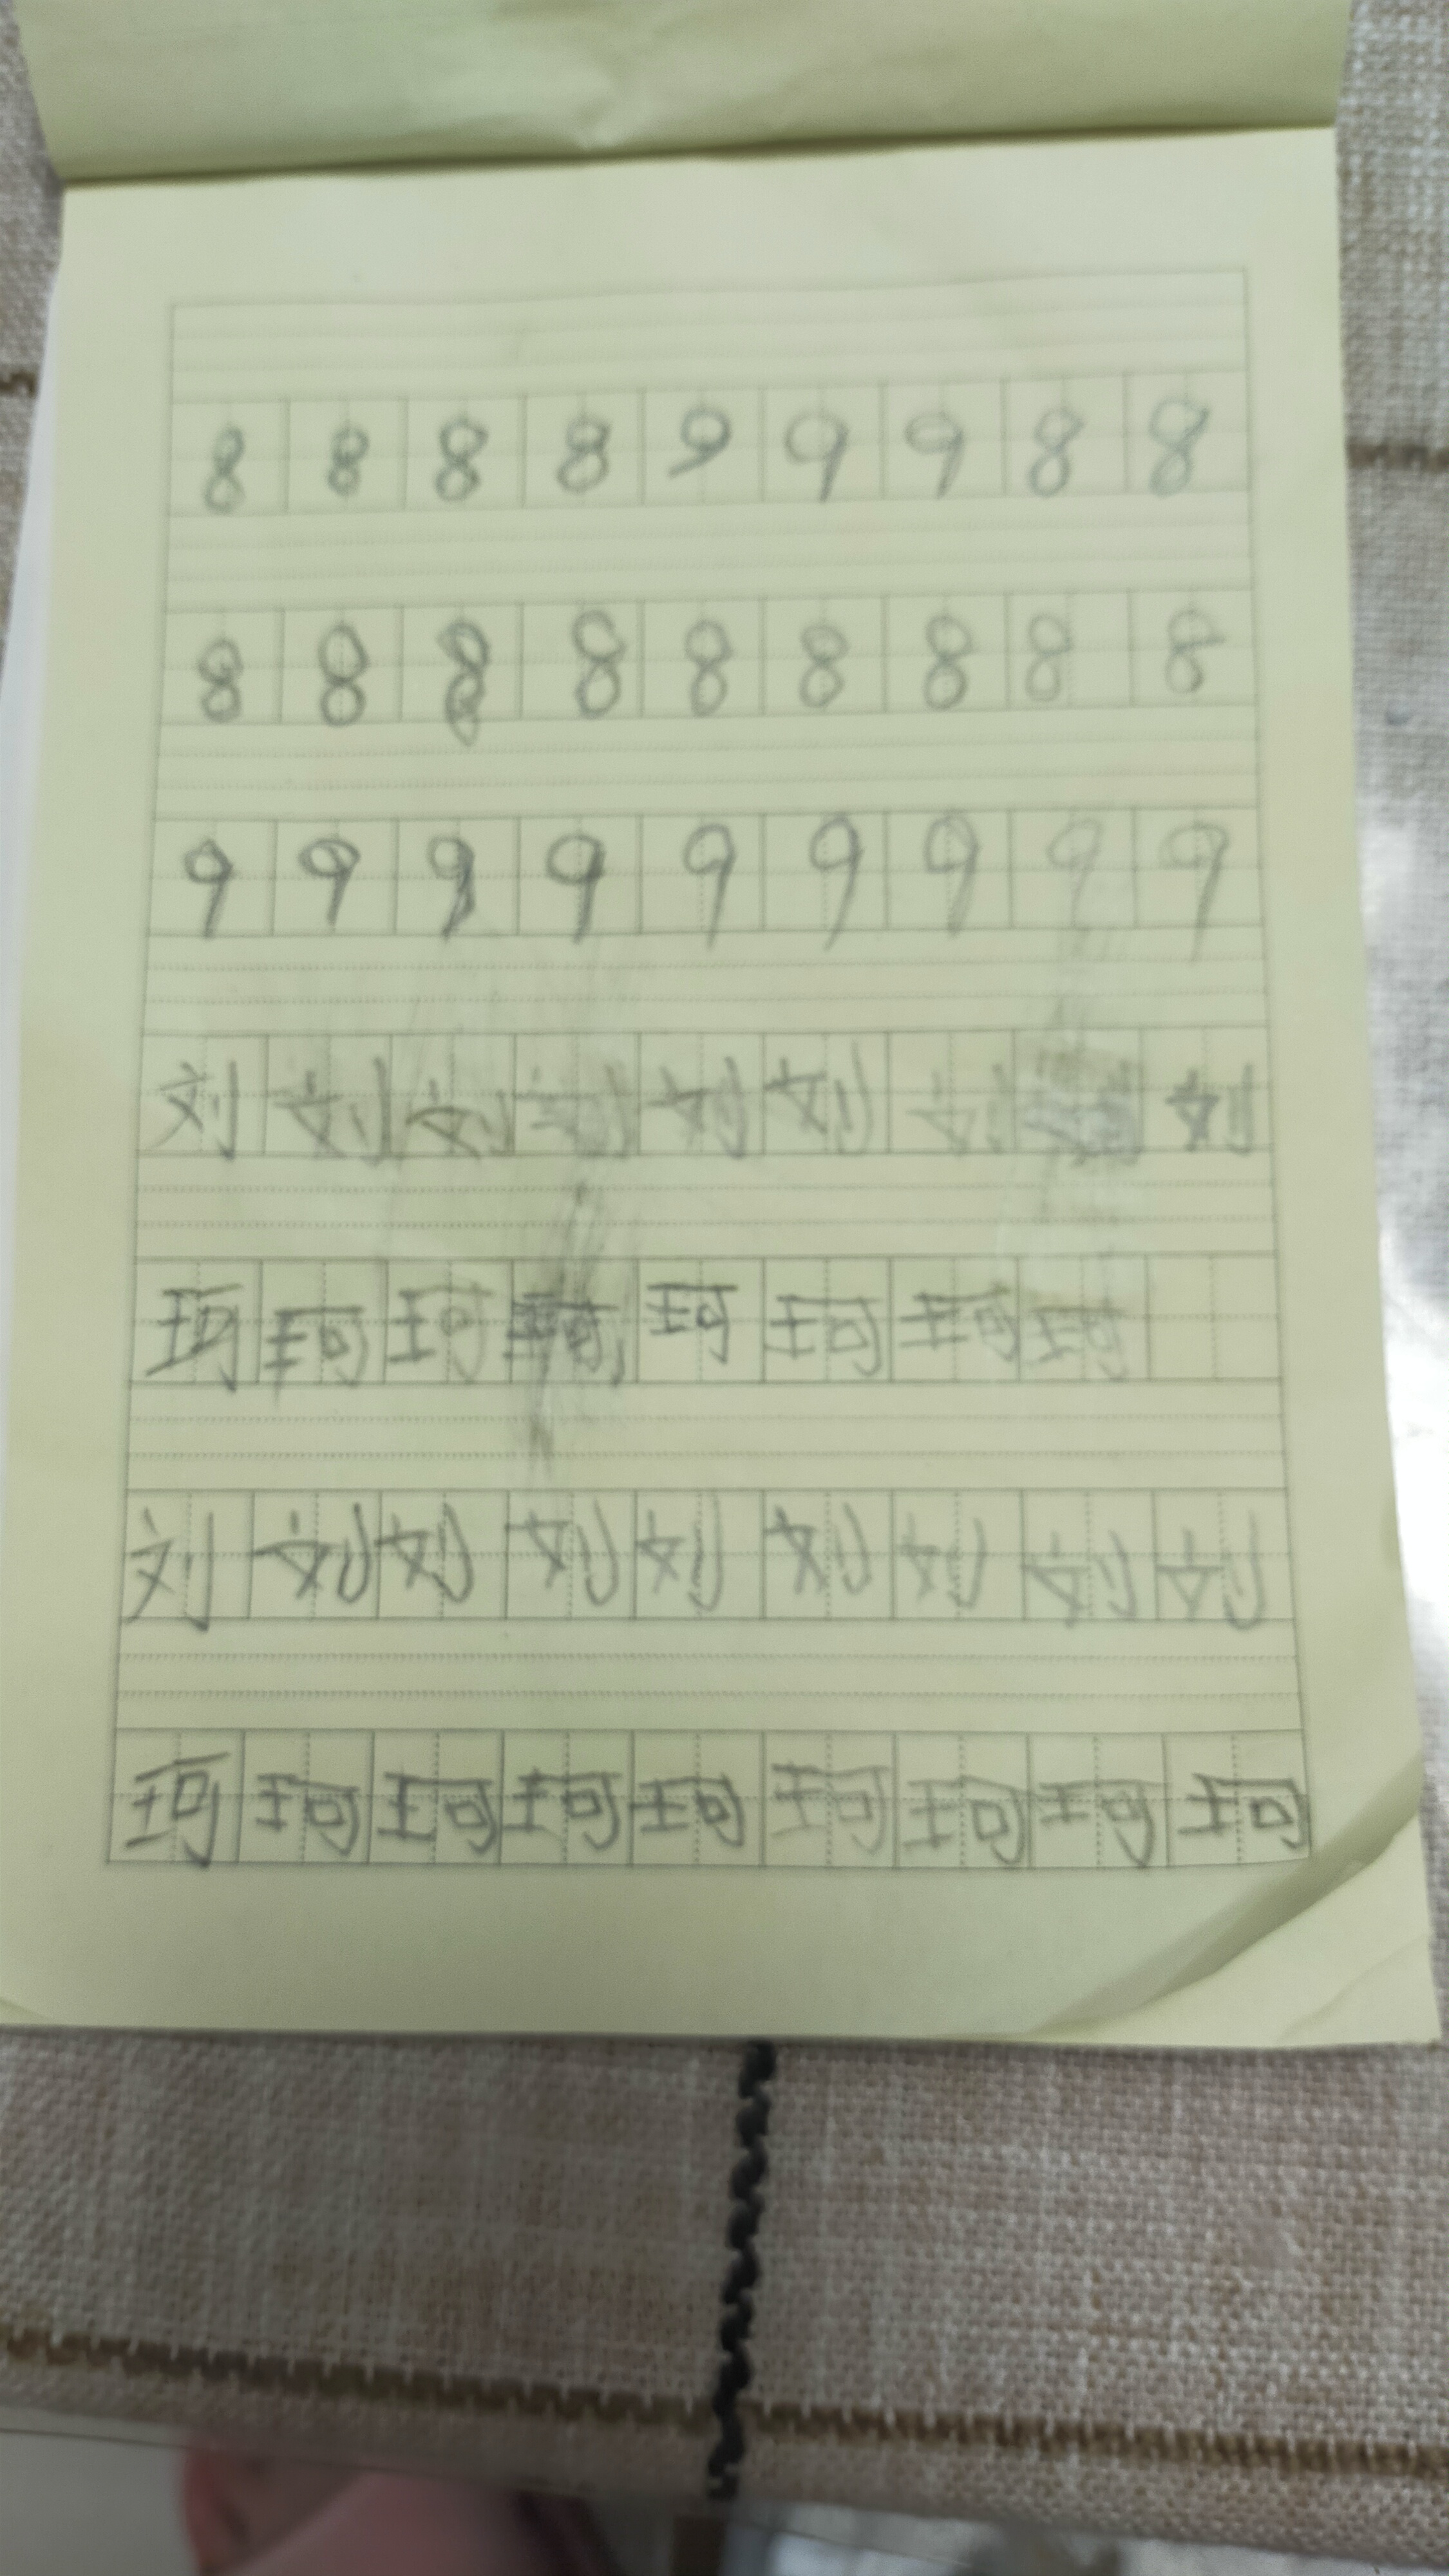 8 8 8 8 9 9 9 8 8
8 8 8 8 8 8 8 8 8
9 9 9 9 9 9 9 9 9
刘 刘 刘 刘 刘 刘 刘 刘
珂 珂 珂 珂 珂 珂 珂 珂
刘 刘 刘 刘 刘 刘 刘 刘 刘
珂 珂 珂 珂 珂 珂 珂 珂 珂